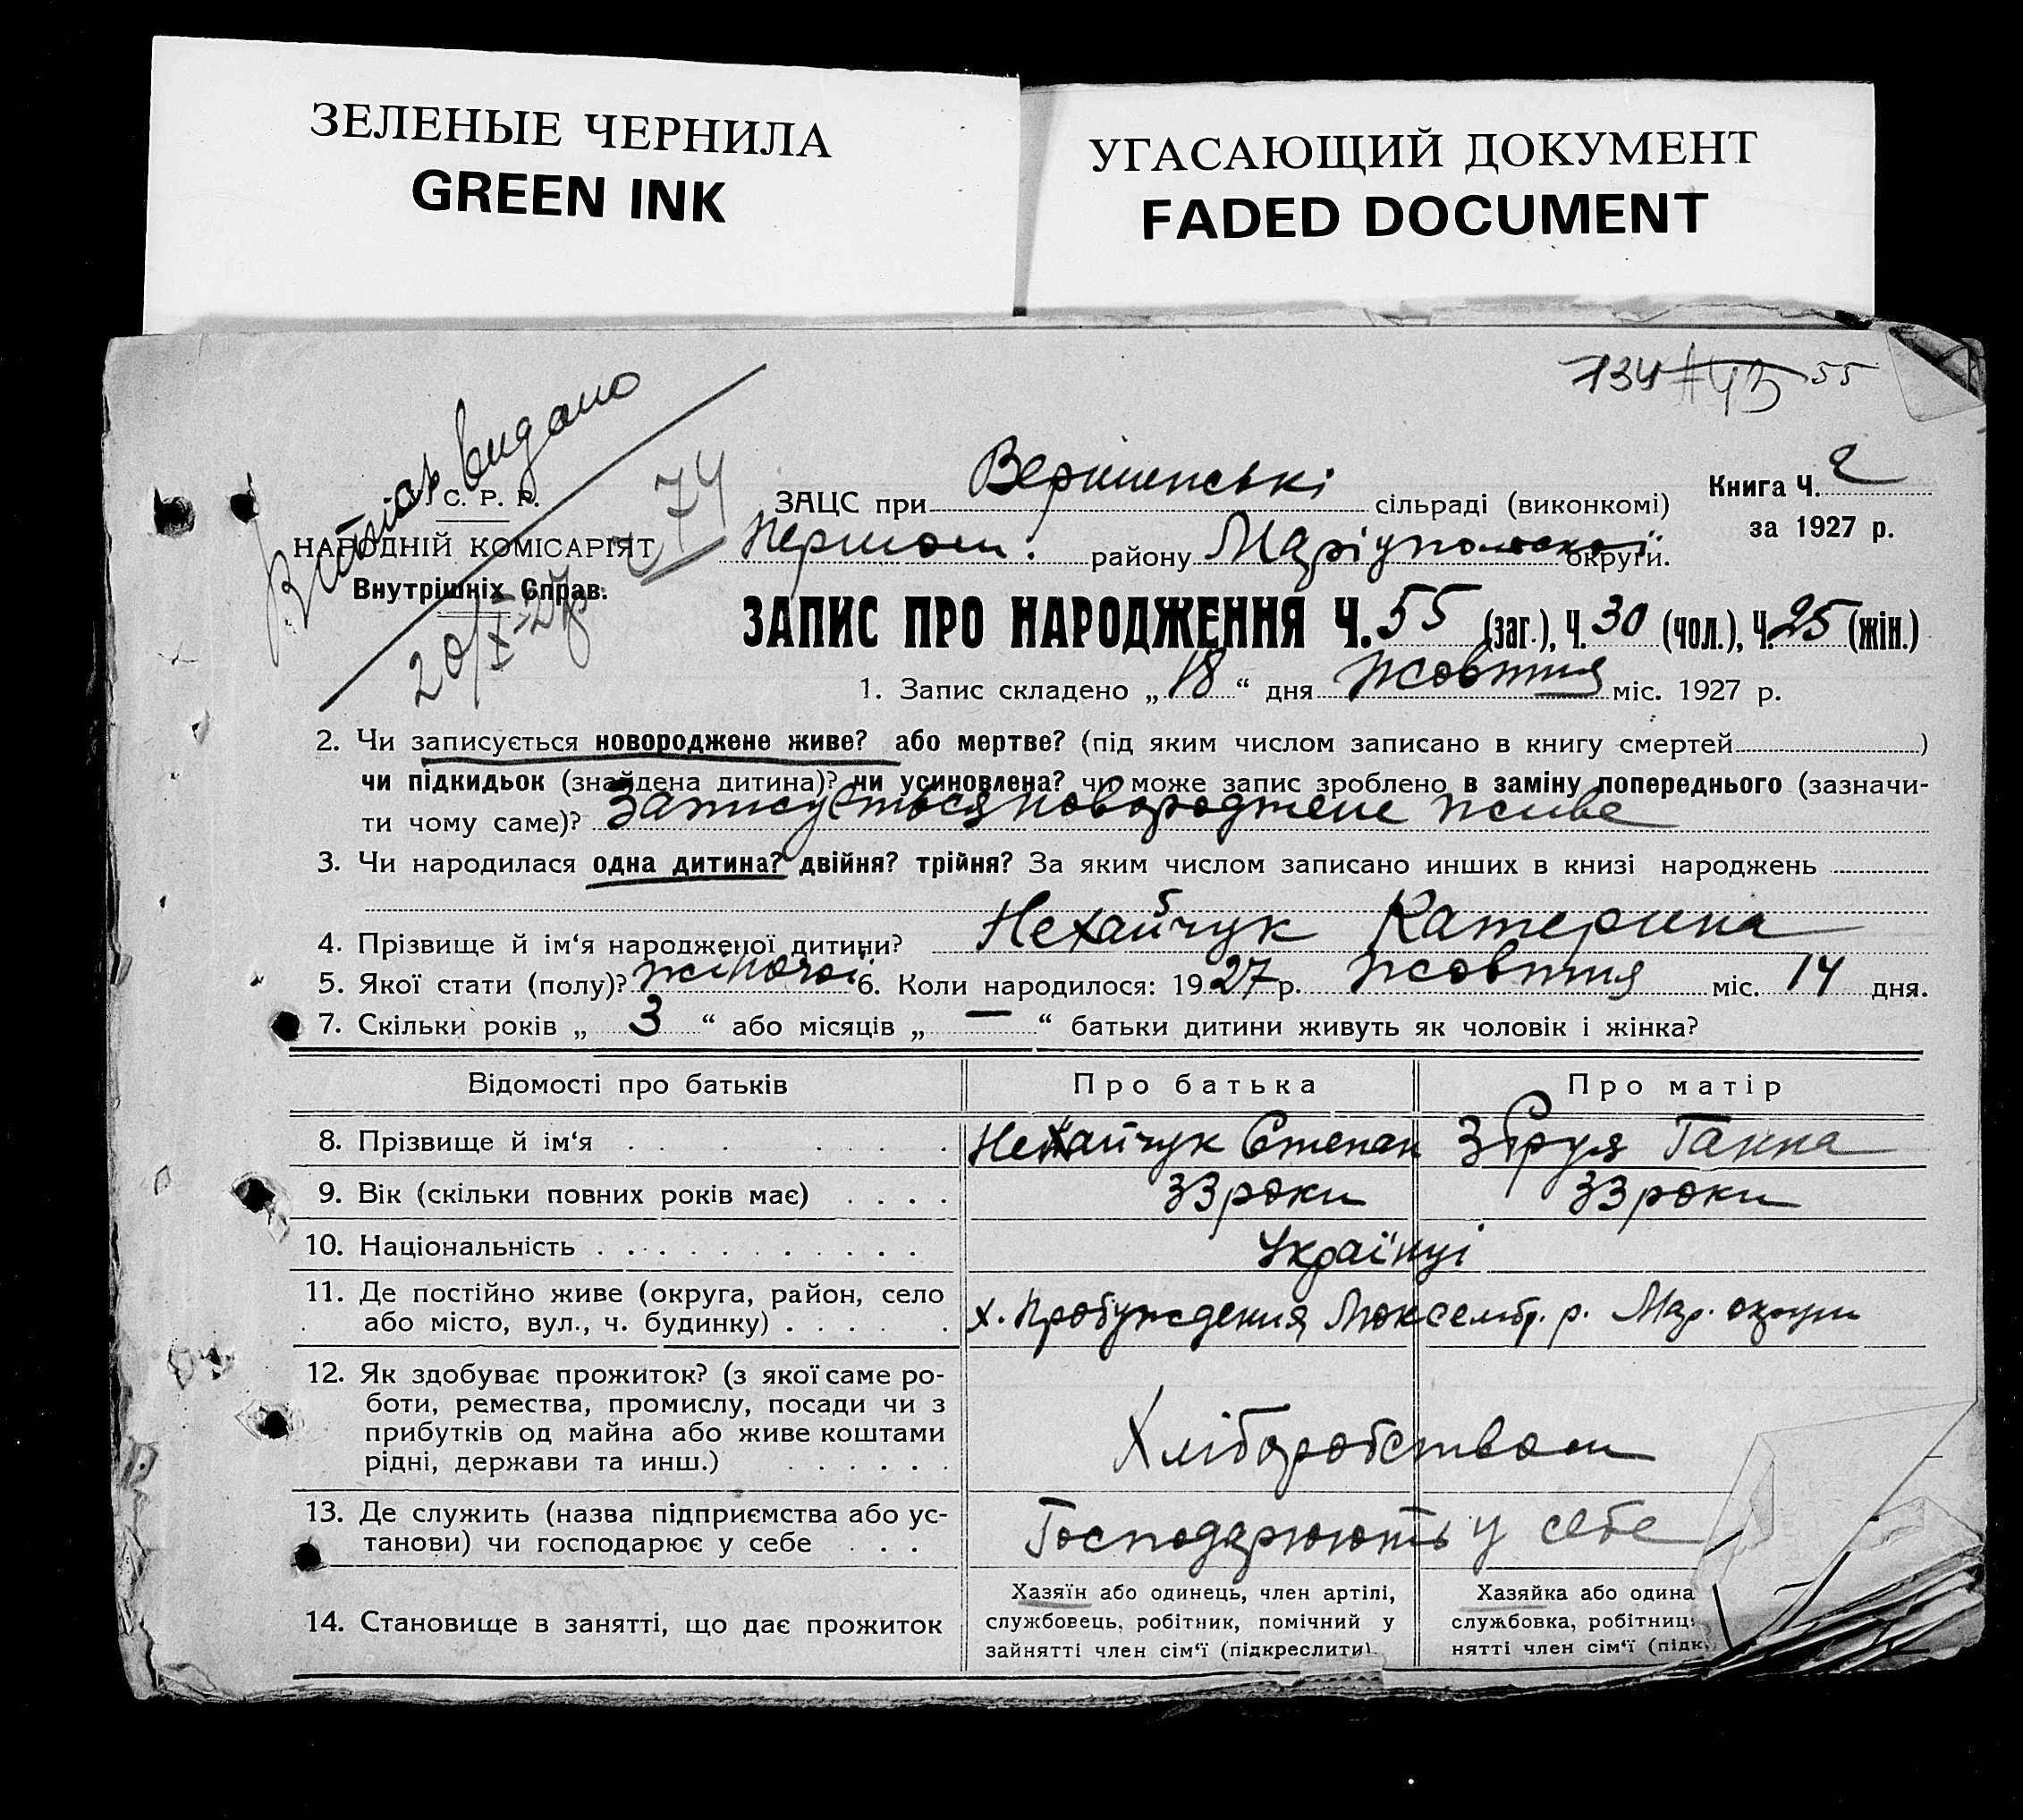 ЗЕЛЕНЫЕ ЧЕРНИЛА
GREEN INK
УГАСАЮЩИЙ ДОКУМЕНТ
FADED DOCUMENT
134 43 55
видано
С. Р. Р.
НАРОДНІЙ КОМІСАРІЯТ
Внутрішніх Справ.
20/X-27р
74
ЗАЦС при Вершенські сільраді (виконкомі)
Книга Ч. 2
за 1927 р.
Першом. району Маріупольської округи.
ЗАПИС ПРО НАРОДЖЕННЯ Ч. 55 (заг.), Ч. 30 (чол.), Ч. 25 (жін.)
1. Запис складено „ 18 “ дня жовтня міс. 1927 р.
2. Чи записується новороджене живе? або мертве? (під яким числом записано в книгу смертей )
чи підкидьок (знайдена дитина)? чи усиновлена? чи може запис зроблено в заміну попереднього (зазначи-
ти чому саме)? Записується новороджене живе
3. Чи народилася одна дитина? двійня? трійня? За яким числом записано инших в книзі народжень
4. Прізвище й ім‘я народженої дитини? Нехайчук Катерина
5. Якої стати (полу)? жіночої 6. Коли народилося: 1927 р. жовтня міс. 14 дня.
7. Скільки років „ 3 “ або місяців „ — “ батьки дитини живуть як чоловік і жінка?
Відомості про батьків Про батька Про матір
8. Прізвище й ім‘я Нехайчук Степан Ганна
9. Вік (скільки повних років має) 33 роки 33 роки
10. Національність Українці
11. Де постійно живе (округа, район, село
або місто, вул., ч. будинку) х. Пробуждения р. Мар. округи
12. Як здобуває прожиток? (з якої саме ро-
боти, ремества, промислу, посади чи з
прибутків од майна або живе коштами
рідні, держави та инш.) Хліборобством
13. Де служить (назва підприємства або ус-
танови) чи господарює у себе Господарюють у себе
14. Становище в занятті, що дає прожиток
Хазяїн або одинець, член артілі,
службовець, робітник, помічний у
зайнятті член сім‘ї (підкреслити).
Хазяйка або одина
службовка, робітниц
нятті член сім‘ї (підк